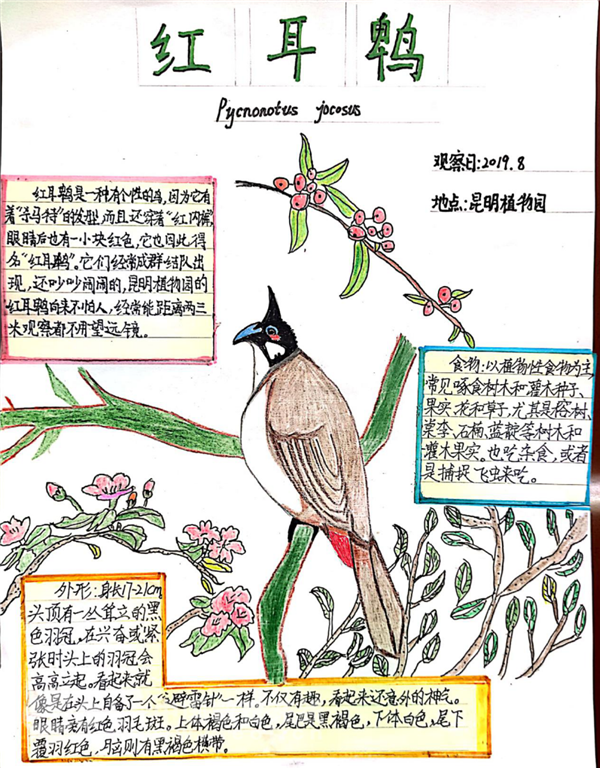 红耳鹎
Pycnonotus jocosus
观察日:2019.8
地点:昆明植物园
红耳鹎是一种有个性的鸟,因为它有
着"杀马特"的发型,而且还穿着"红内裤",
眼睛后也有一小块红色,它也因此得
名"红耳鹎"。它们经常成群结队出
现,还吵吵闹闹的,昆明植物园的
红耳鹎向来不怕人,经常能距离两三
米观察都不用望远镜。
食物:以植物性食物为主,
常见啄食树木和灌木种子、
果实、花和草子,尤其是榕树、
棠李、石楠、蓝靛等树木和
灌木果实。也吃杂食,或者
是捕捉飞虫来吃。
外形:身长17-21cm
头顶有一丛耸立的黑
色羽冠,在兴奋或紧
张时头上的羽冠会
高高立起。看起来就
像是在头上自备了一个"避雷针"一样。不仅有趣,看起来还意外的神气。
眼睛旁有红色羽毛斑。上体褐色和白色,尾巴是黑褐色,下体白色,尾下
覆羽红色,则有黑褐色横带。